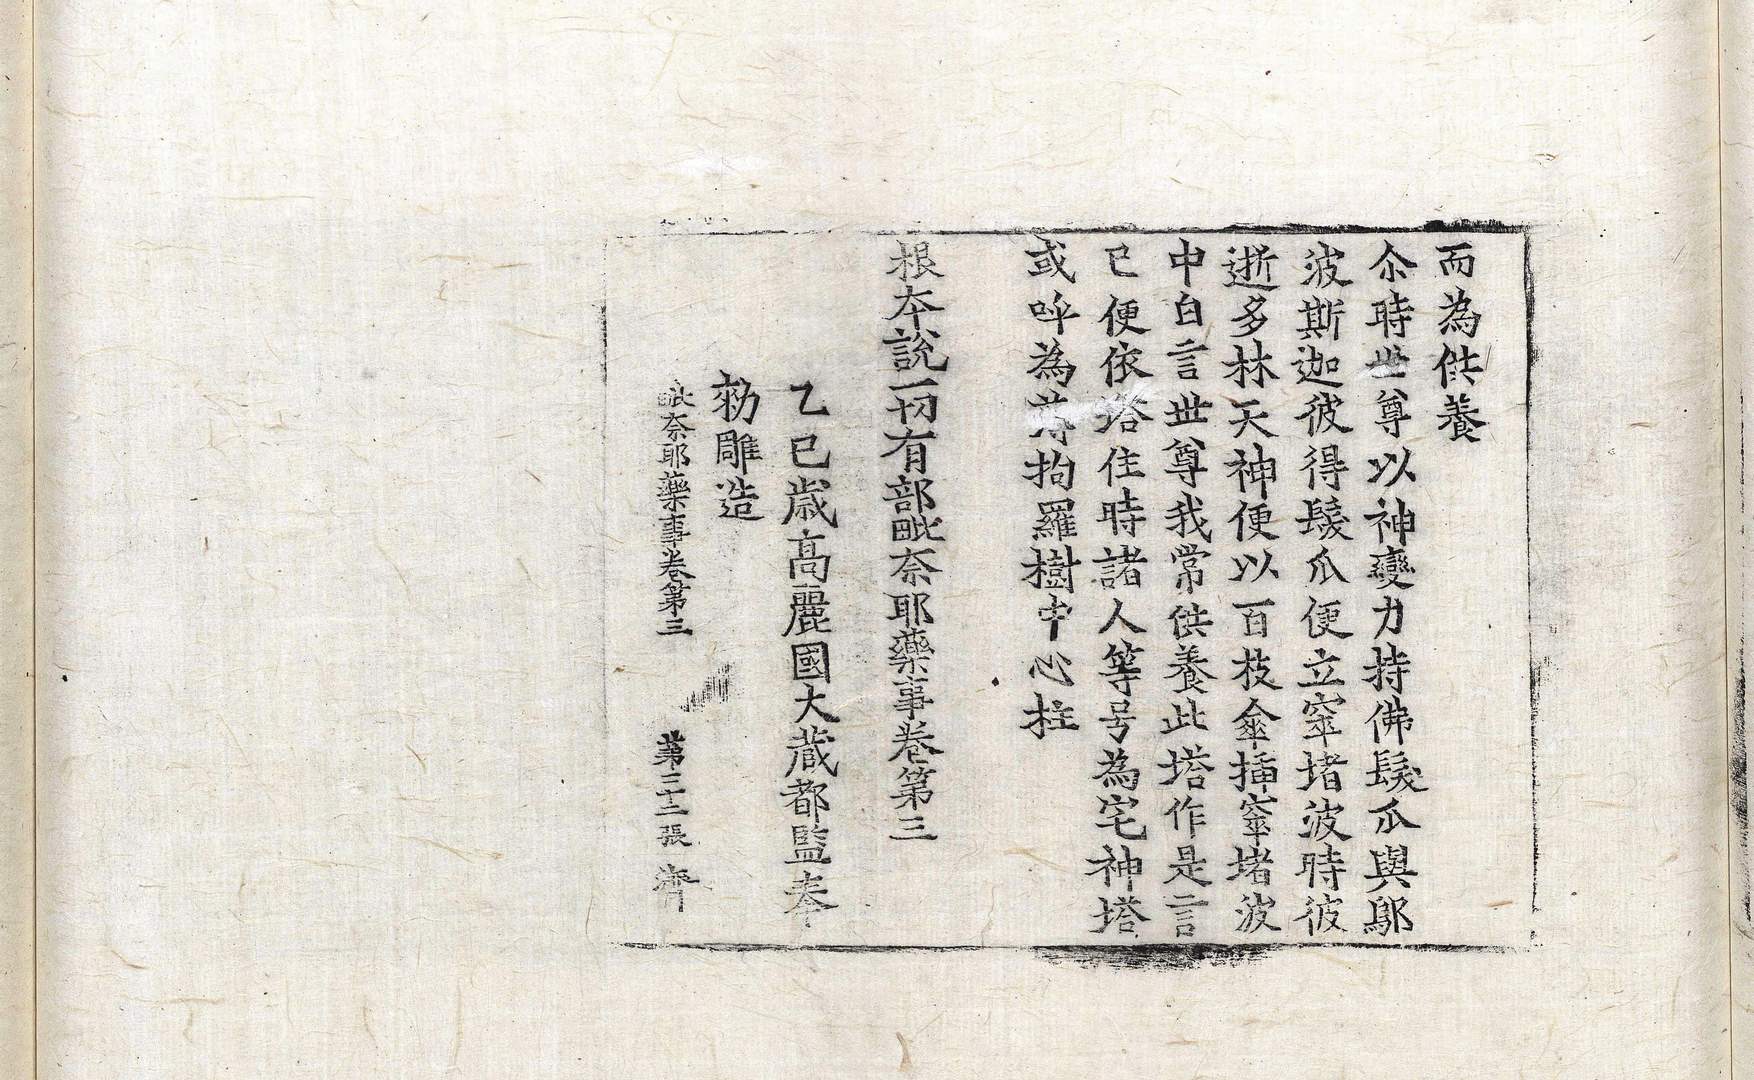 而為供養
尒時世尊以神變力持佛髮爪與鄔
波斯迦彼得髮爪便立窣堵波時彼
逝多林天神便以百枝傘插窣堵波
中白言世尊我常供養此塔作是言
已便依塔住時諸人等号為宅神塔
或呼為薄拘羅樹中心柱
根本說一切有部毗奈耶藥事卷第三
乙巳歲高麗國大藏都監奉
勑雕造
毗奈耶藥事卷第三 第三十二張 齊